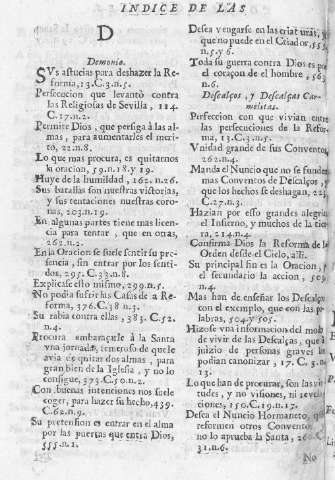 INDICE DE LAS
D
Demonio.
SVs astucias para deshazer la Re-
forma, 13. C. 3. n. 5.
Persecucion que levantò contra
las Religiosas de Sevilla, 114.
C. 17. n. 2.
Permite Dios, que persiga à las al-
mas, para aumentarles el meri-
to, 22. n. 8.
Lo que mas procura, es quitarnos
la oracion, 59. n. 18. y 19.
Huye de la humildad, 162. n. 26.
Sus batallas son nuestras victorias,
y sus tentaciones nuestras coro-
nas, 203. n. 19.
En algunas partes tiene mas licen-
cia para tentar, que en otras,
262. n. 2.
En la Oracion se suele sentir su pre-
sencia, sin entrar por los senti-
dos, 295. C. 33. n. 8.
Explicase esto mismo, 299. n. 5.
No podia sufrir las Casas de la Re-
forma, 376. C. 18. n. 3.
Su rabia contra ellas, 383. C. 52.
n. 4.
Procura embaraçarle à la Santa
vna jornada, temeroso de que le
avia de quitar dos almas, para
gran bien de la Iglesia, y no lo
consigue, 373. C. 50. n. 2.
Con buenas intenciones nos suele
coger, para hazer su hecho, 439.
C. 62. n. 9.
Su pretension es entrar en el alma
por las puertas que entra Dios,
555. n. 1.
Desea vengarse en las criaturas,
que no puede en el Criador, 555.
n. 5. y 6.
Toda su guerra contra Dios es por
el coraçon de el hombre, 556.
n. 6.
Descalços, y Descalças Car-
melitas.
Perfeccion con que vivian entre
las persecuciones de la Refor-
ma, 13. C. 3. n. 5.
Vnidad grande de sus Conventos,
262. n. 4.
Manda el Nuncio que no se funden
mas Conventos de Descalços, y
que los hechos se deshagan,
C. 27. n. 3.
Hazian por esso grandes alegrias
el Infierno, y muchos de la tie-
rra, 214. n. 4.
Confirma Dios la Reforma de la
Orden desde el Cielo, alli.
Su principal fin es la Oracion, y
el secundario la accion,
n. 4.
Mas han de enseñar los Descalços
con el exemplo, que con las pa-
labras, 504. y 505.
Hizose vna informacion del modo
de vivir de las Descalças, que à
juizio de personas graves las
podian canonizar, 17. C. 3. n.
13.
Lo que han de procurar, son las vir-
tudes, y no visiones, ni revela-
ciones, 150. C. 19. n. 17.
Desea el Nuncio Hormaneto, que
reformen otros Conventos,
no lo aprueba la Santa,
31. n. 6.
No